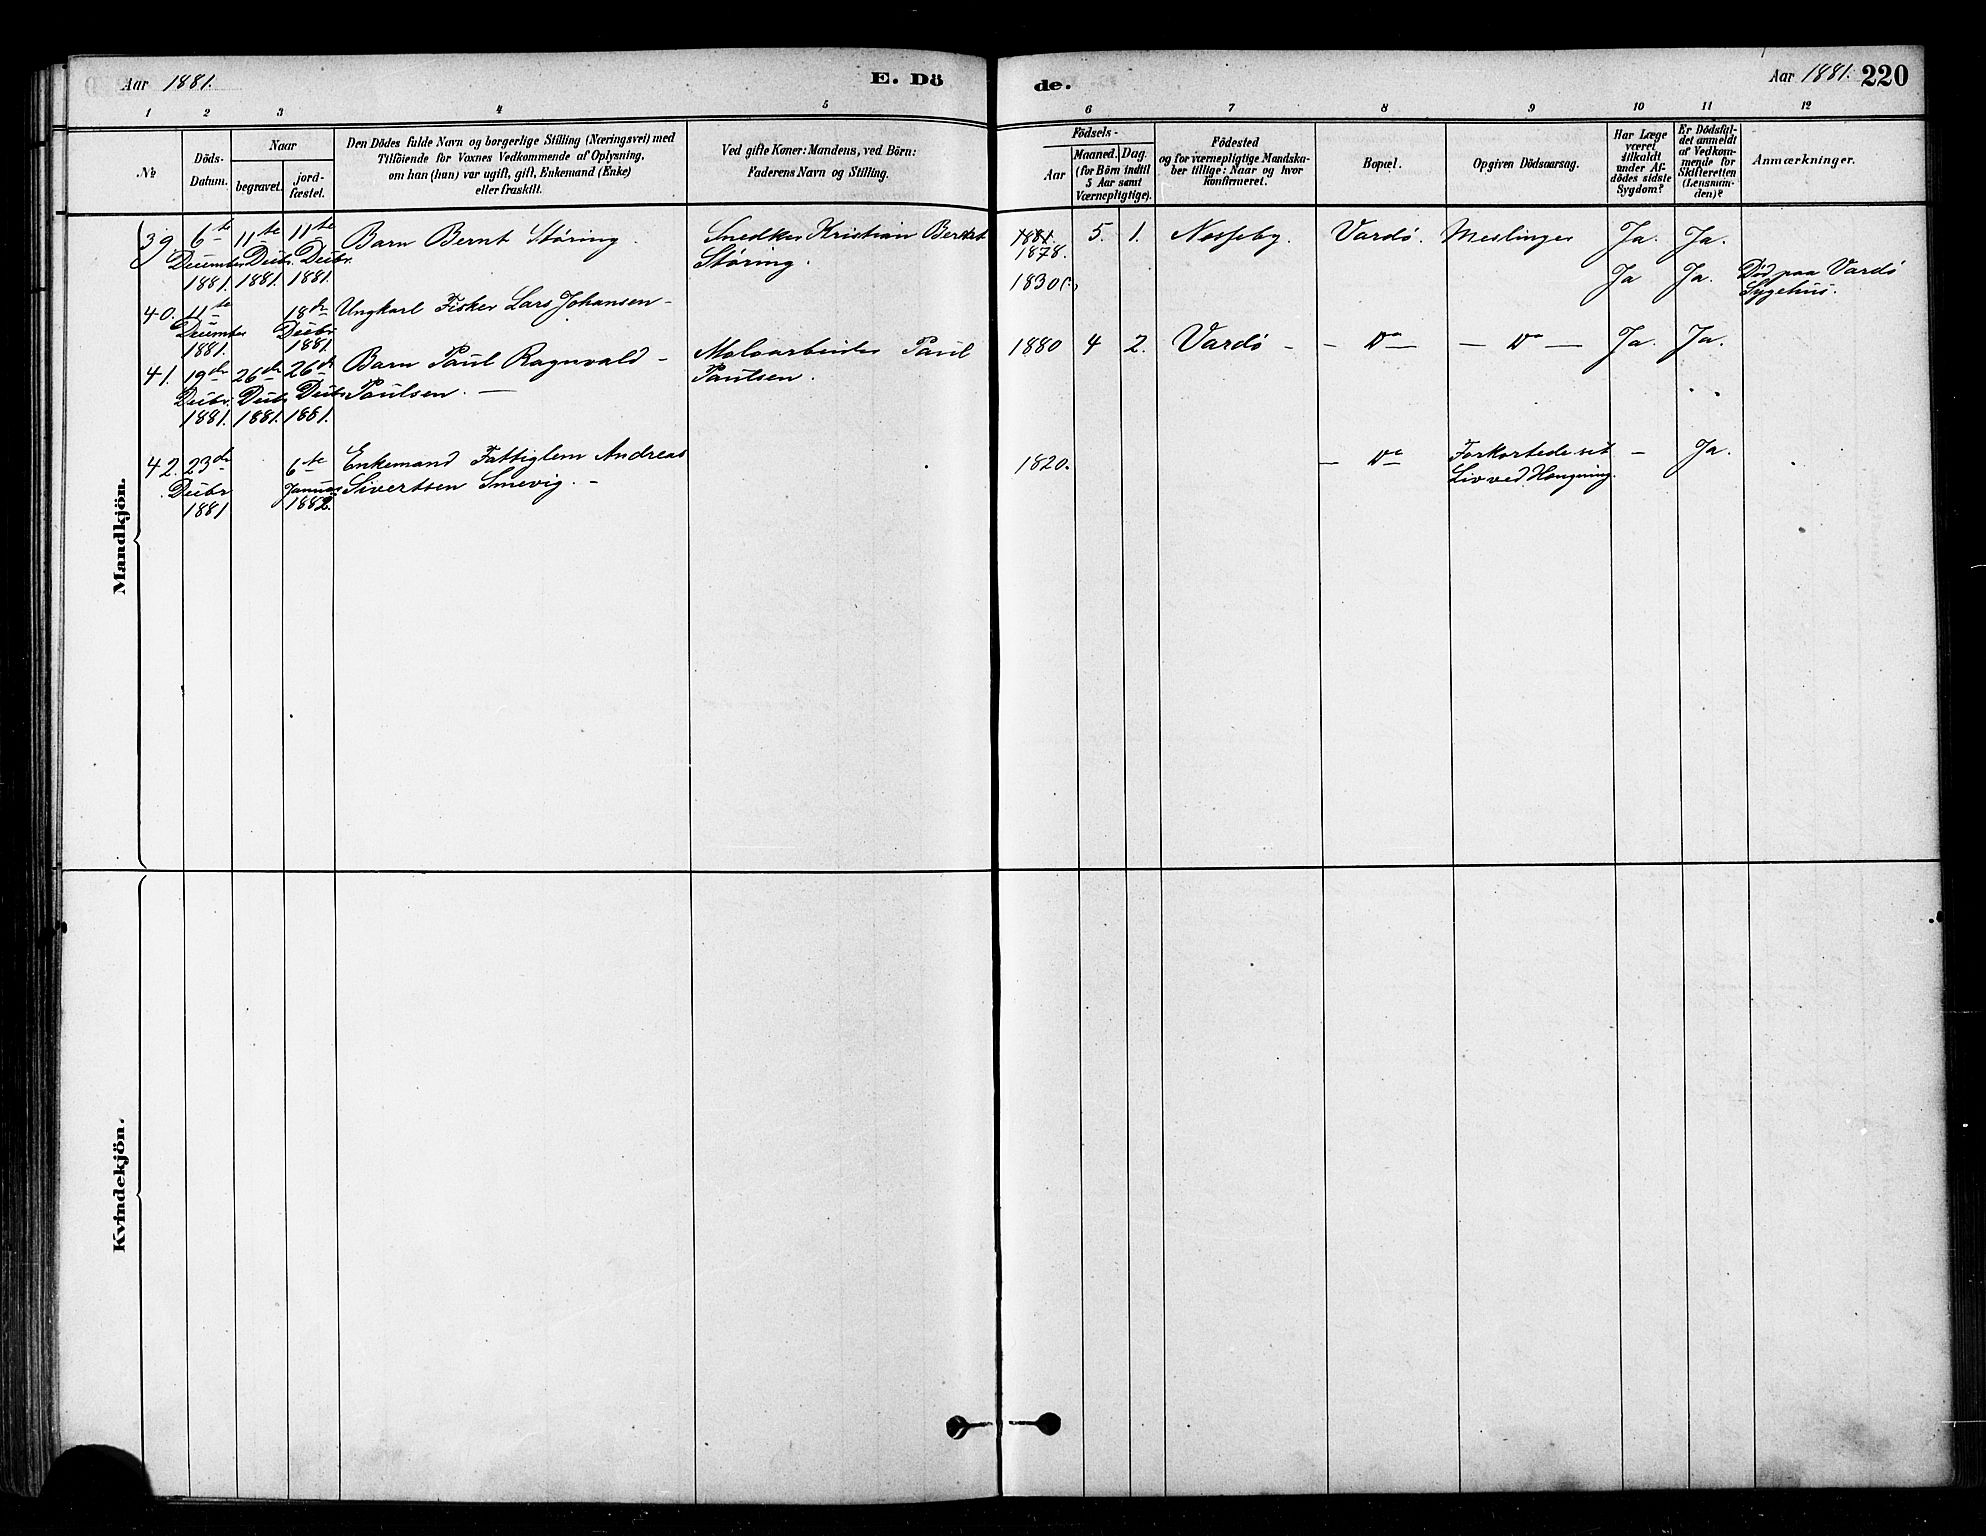 Aar 1881.
E. Dö
de.
Aar 1881.
220
1 2 3 4 5
6 7 8 9 10 11 12
No
Döds-Datum.
Naar
begravet.
jord-fæstet.
Den Dödes fulde Navn og borgerlige Stilling (Næringsvei) med
Tilföiende for Voxnes Vedkommende af Oplysning,
om han (hun) var ugift, gift, Enkemand (Enke)
eller fraskilt.
Ved gifte Koner: Mandens, ved Börn:
Faderens Navn og Stilling.
Födsels-
Aar
Maaned. Dag.
(for Börn indtil
5 Aar samt
Værnepligtige).
Födested
og for værnepligtige Mandska-
ber tillige: Naar og hvor
konfirmeret.
Bopæl.
Opgiven Dödsaarsag.
Har Læge
været
tilkaldt
under Af-
dödes sidste
Sygdom?
Er Dödsfal-
det anmeldt
af Vedkom-
mende for
Skifteretten
(Lensman-
den)?
Anmærkninger.
Mandkjön.
39 6te 11te 11te Barn Bernt Störing. Snedker Kristian Bernt 1881. 5. 1. Nesseby. Vardö. Meslinger Ja. Ja.
December Decbr. Decbr. Störing. 1878.
1881. 1881. 1881.
40. 11te 18de Ungkarl Fisker Lars Johansen - 1830 Ja Ja. Död paa Vardö
December Decbr. Sygehus.
1881. 1881.
41. 19de 26de 26de Barn Paul Ragnvald - Moloarbeider Paul 1880 4 2. Vardö - - Do - - Do - Ja. Ja.
Decbr. Decbr Decbr Paulsen. - Paulsen.
1881. 1881. 1881.
42. 23de 6te Enkemand Fattiglem Andreas 1820. - Do - Forkortede sit - Ja.
Decbr Januar Sivertsen Smevig. - Liv ved Hængning.
1881 1882.
Kvindekjön.